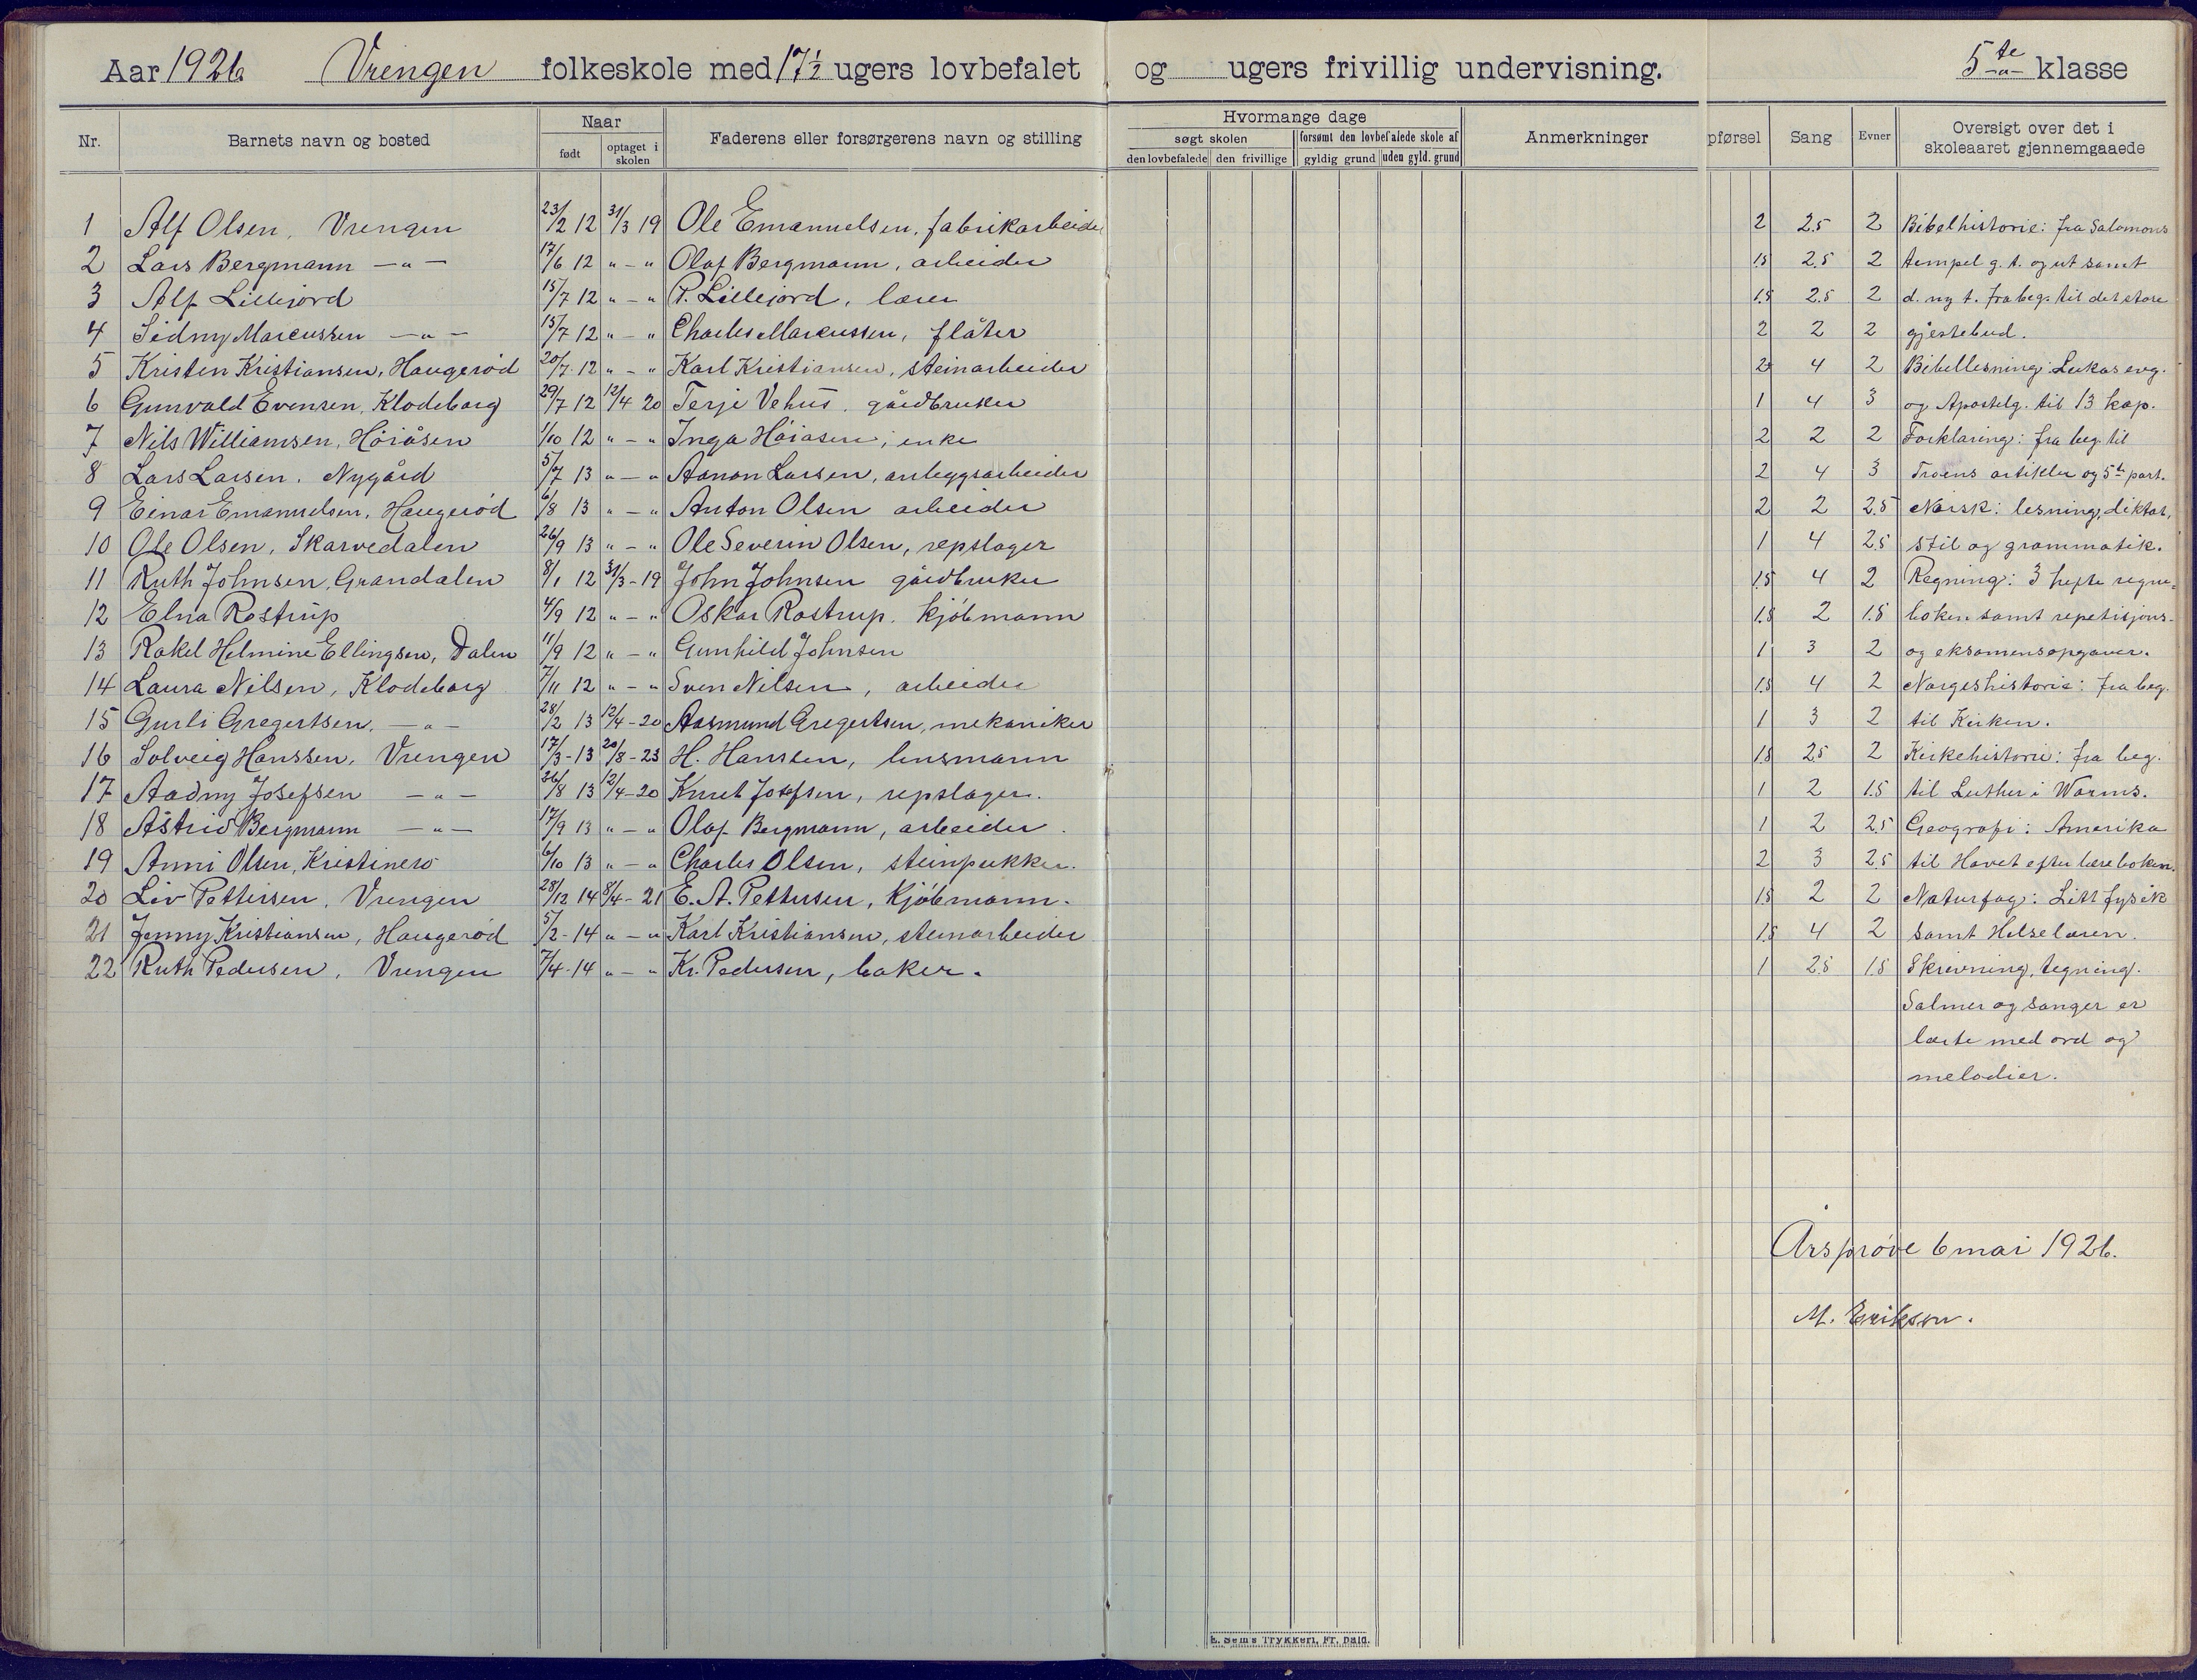 Aar 1926 Vrengen folkeskole med 17½ ugers lovbefalet og ugers frivillig undervisning. 5te klasse
Nr. Barnets navn og bosted Naar født optaget i skolen Faderens eller forsørgerens navn og stilling Hvormange dage søgt skolen den lovbefalede den frivillige forsømt den lovbefalede skole af gyldig grund uden gyld. grund Anmerkninger pførsel Sang Evner Oversigt over det i skoleaaret gjennemgaaede
1 Alf Olsen, Vrengen 23/2 12 31/3 19 Ole Emanuelsen, fabrikarbeider 2 2.5 2 Bibelhistorie: fra Salomons
2 Lars Bergmann -"- 17/6 12 " - " Olaf Bergmann, arbeider 1.5 2.5 2 tempel g. t. og ut samt
3 Alf Lillejord 15/7 12 " - " P. Lillejord, lærer 1.5 2.5 2 d. ny t. fra beg. til det store
4 Sidny Marcussen -"- 15/7 12 " - " Charles Marcussen, flåter 2 2 2 gjestebud.
5 Kristen Kristiansen, Haugerød 20/7 12 " - " Karl Kristiansen, steinarbeider 2 4 2 Bibellesning: Lukas evg.
6 Gunvald Evensen, Klodeborg 29/7 12 12/4 20 Terje Vehus, gårdbruker 1 4 3 og Apostelg. til 13 kap.
7 Nils Williamsen, Høiåsen 1/10 12 " - " Inga Høiåsen, enke 2 2 2 Forklaring: fra beg. til
8 Lars Larsen, Nygård 5/7 13 " - " Aanon Larsen, anleggsarbeider 2 4 3 Troens artikler og 5te part.
9 Einar Emanuelsen, Haugerød 6/8 13 " - " Anton Olsen arbeider 2 2 2.5 Norsk: lesning, diktat,
10 Ole Olsen, Skarvedalen 26/9 13 " - " Ole Severin Olsen, repslager 1 4 2.5 stil og grammatik.
11 Ruth Johnsen, Grandalen 8/1 12 31/3 - 19 John Johnsen gårdbruker 1.5 4 2 Regning: 3 hefte regne-
12 Elna Rostrup 4/9 12 " - " Oskar Rostrup, kjøbmann 1.5 2 1.5 boken samt repetisjons-
13 Rakel Helmine Ellingsen, Dalen 11/9 12 " - " Gunhild Johnsen 1 3 2 og eksamensopgaver.
14 Laura Nilsen, Klodeborg 7/11 12 " - " Sven Nilsen, arbeider 1.5 4 2 Norgeshistorie: fra beg.
15 Gurli Gregertsen, -"- 28/2 13 12/4 - 20 Aasmund Gregertsen, mekaniker 1 3 2 til Kirken.
16 Solveig Hanssen, Vrengen 17/3 - 13 20/8 - 23 H. Hanssen, lensmann 1.5 2.5 2 Kirkehistorie: fra beg.
17 Aadny Josefsen -"- 26/8 13 12/4 - 20 Knut Josefsen, repslager. 1 2 1.5 til Luther i Worms.
18 Astrid Bergmann -"- 17/9 13 " - " Olaf Bergmann, arbeider. 1 2 2.5 Geografi: Amerika
19 Anni Olsen, Kristinero 6/10 13 " - " Charles Olsen, steinpukker. 2 3 2.5 til Havet efter læreboken.
20 Liv Pettersen, Vrengen 28/12 14 8/4 - 21 E. A. Pettersen, Kjøbmann. 1.5 2 2 Naturfag: Litt fysik
21 Jenny Kristiansen, Haugerød 5/2 - 14 " - " Karl Kristiansen, steinarbeider 1.5 4 2 samt Helselæren.
22 Ruth Pedersen, Vrengen 7/4 - 14 " - " Kr. Pedersen, baker. 1 2.5 1.5 Skrivning, tegning.
Salmer og sanger er
lærte med ord og
melodier.
Årsprøve 6 mai 1926.
M. Erikson.
E. Sems Trykkeri, Fr. hald.